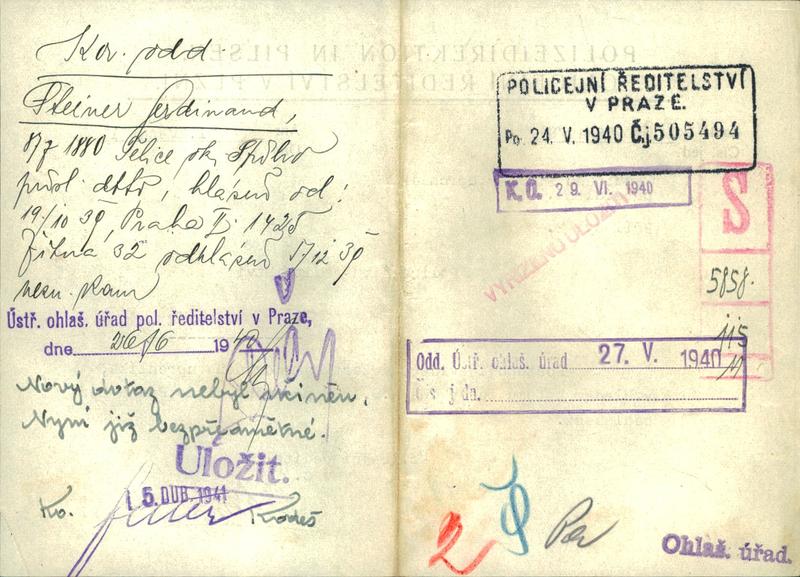 Kor. odd
Steiner Ferdinand,
8/7 1880 ok.
přísl. dtto, hlášen od:
19/10 39, Praha II. 1425
Žitná 32 odhlášen 5/12 39
nezn. kam
Ústř. ohlaš. úřad pol. ředitelství v Praze,
dne 26/6 1940
Nový dotaz nebyl učiněn.
Nyní již bezpředmětné.
Uložit.
15. DUB. 1941
Ko. Kodeš
POLIZEIDIREKTION IN PILSEN
ŘEDITELSTVÍ V PLZNI
POLICEJNÍ ŘEDITELSTVÍ
V PRAZE.
Po. 24. V. 1940 Čj. 505494
K. O. 29. VI. 1940
VYŘÍZENO ULOŽIT
S
5858.
115
14
Odd. Ústř. ohlaš. úřad 27. V. 1940
Čís jdn.
2
Ohlaš. úřad.